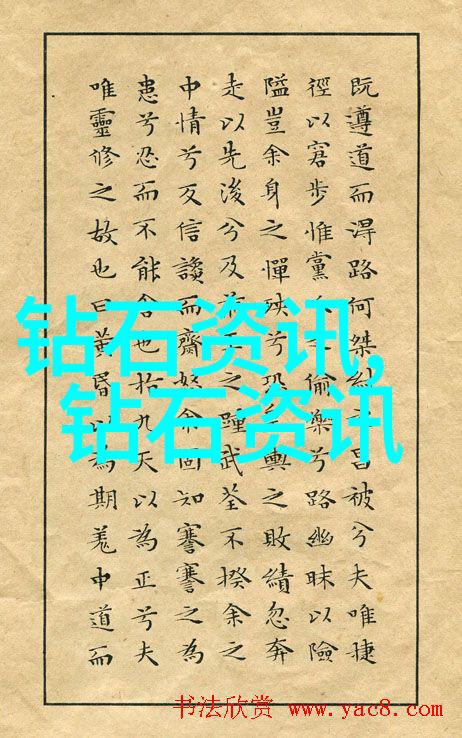 既遵道而淂路何桀紂之昌被兮夫唯捷
徑以窘步惟黨人之偷樂兮路幽昧以險
隘豈余身之憚殃兮恐皇輿之敗績忽奔
走以先後兮及前王之踵武荃不揆余之
中情兮反信讒而齋怒余固知謇謇之為
患兮忍而不能舍也指九天以為正兮夫
唯靈修之故也曰黃昏以為期羌中道而
钻石资讯,
钻石资讯
书法欣赏 www.yac8.com